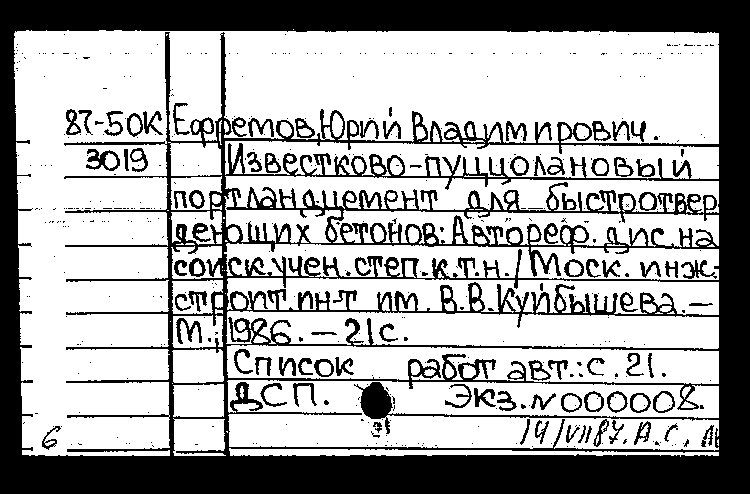 87-50К Ефремов, Юрий Владимирович.
3019 Известково-пуццолановый
портландцемент для быстротвер
деющих бетонов: Автореф. дис. на
соиск. учен. степ. к.т.н. / Моск. инж.-
строит. ин-т им. В.В. Куйбышева. —
М., 1986. — 21 с.
Список работ авт.: с. 21.
ДСП. Экз. № 000008.
6 14/VII 87. А.С.